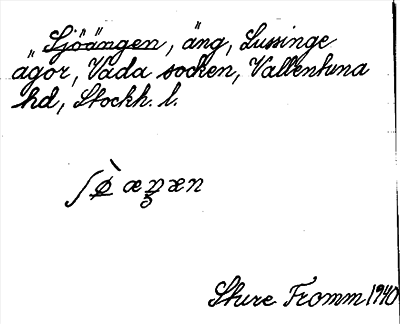 Sjöängen, äng, Lussinge
ägor, Vada socken, Vallentuna
hd, Stockh. l.
Sture Fromm 1940